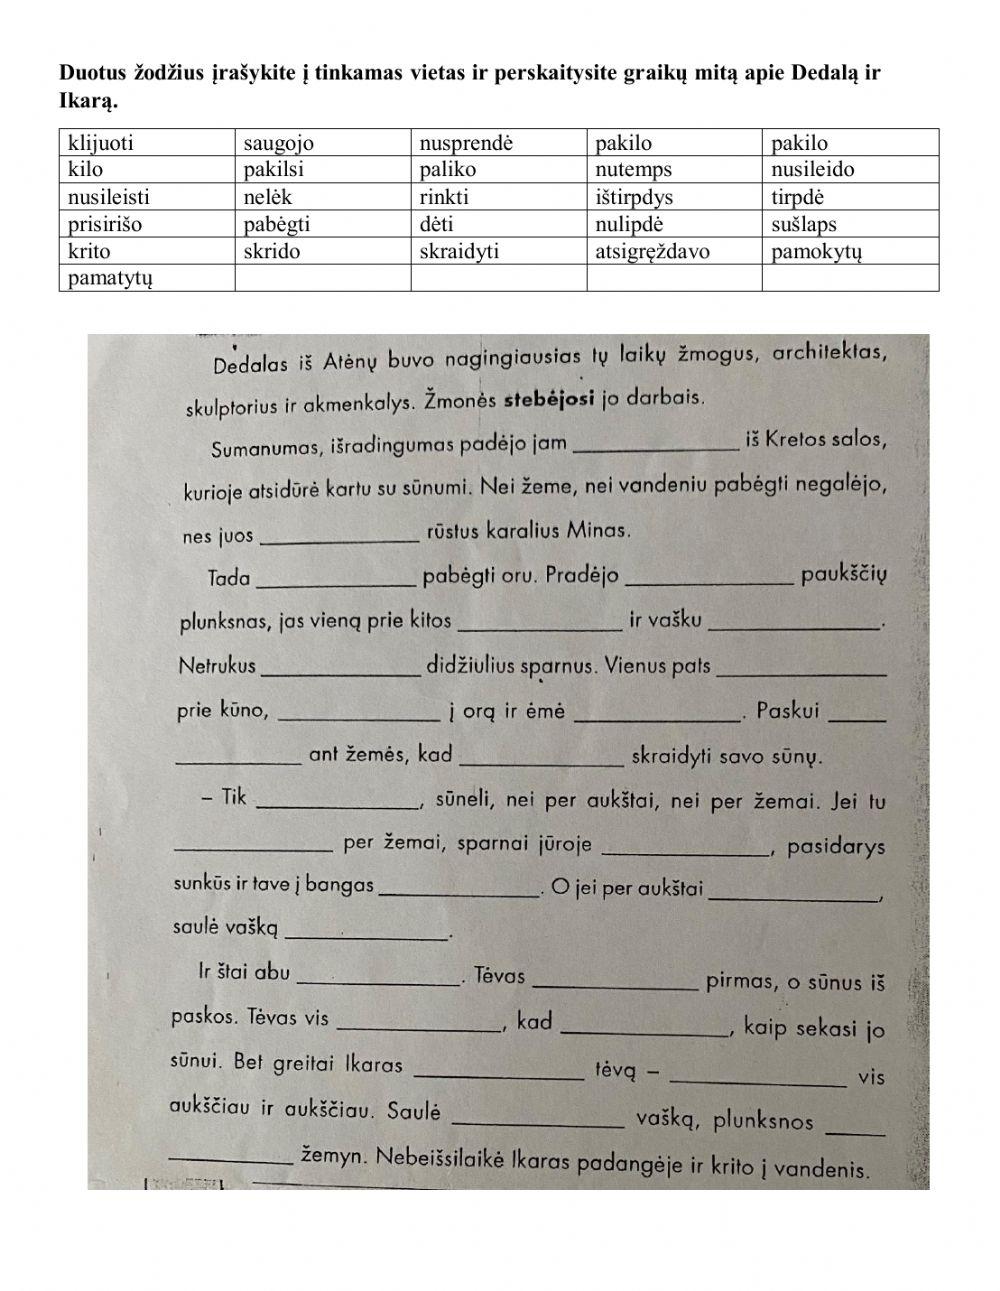 Duotus žodžius įrašykite į tinkamas vietas ir perskaitysite graikų mitą apie Dedalą ir
Ikarą.
klijuoti saugojo nusprendė pakilo pakilo
kilo pakilsi paliko nutemps nusileido
nusileisti nelėk rinkti ištirpdys tirpdė
prisirišo pabėgti dėti nulipdė sušlaps
krito skrido skraidyti atsigręždavo pamokytų
pamatytų
Dedalas iš Atėnų buvo nagingiausias tų laikų žmogus, architektas,
skulptorius ir akmenkalys. Žmonės stebėjosi jo darbais.
Sumanumas, išradingumas padėjo jam ____________ iš Kretos salos,
kurioje atsidūrė kartu su sūnumi. Nei žeme, nei vandeniu pabėgti negalėjo,
nes juos ____________ rūstus karalius Minas.
Tada ____________ pabėgti oru. Pradėjo ____________ paukščių
plunksnas, jas vieną prie kitos ____________ ir vašku ____________.
Netrukus ____________ didžiulius sparnus. Vienus pats ____________
prie kūno, ____________ į orą ir ėmė ____________. Paskui ____
_________ ant žemės, kad ____________ skraidyti savo sūnų.
– Tik ____________, sūneli, nei per aukštai, nei per žemai. Jei tu
____________ per žemai, sparnai jūroje ____________, pasidarys
sunkūs ir tave į bangas ____________. O jei per aukštai ____________,
saulė vašką ____________.
Ir štai abu ____________. Tėvas ____________ pirmas, o sūnus iš
paskos. Tėvas vis ____________, kad ____________, kaip sekasi jo
sūnui. Bet greitai Ikaras ____________ tėvą – ____________ vis
aukščiau ir aukščiau. Saulė ____________ vašką, plunksnos ____
_________ žemyn. Nebeišsilaikė Ikaras padangėje ir krito į vandenis.